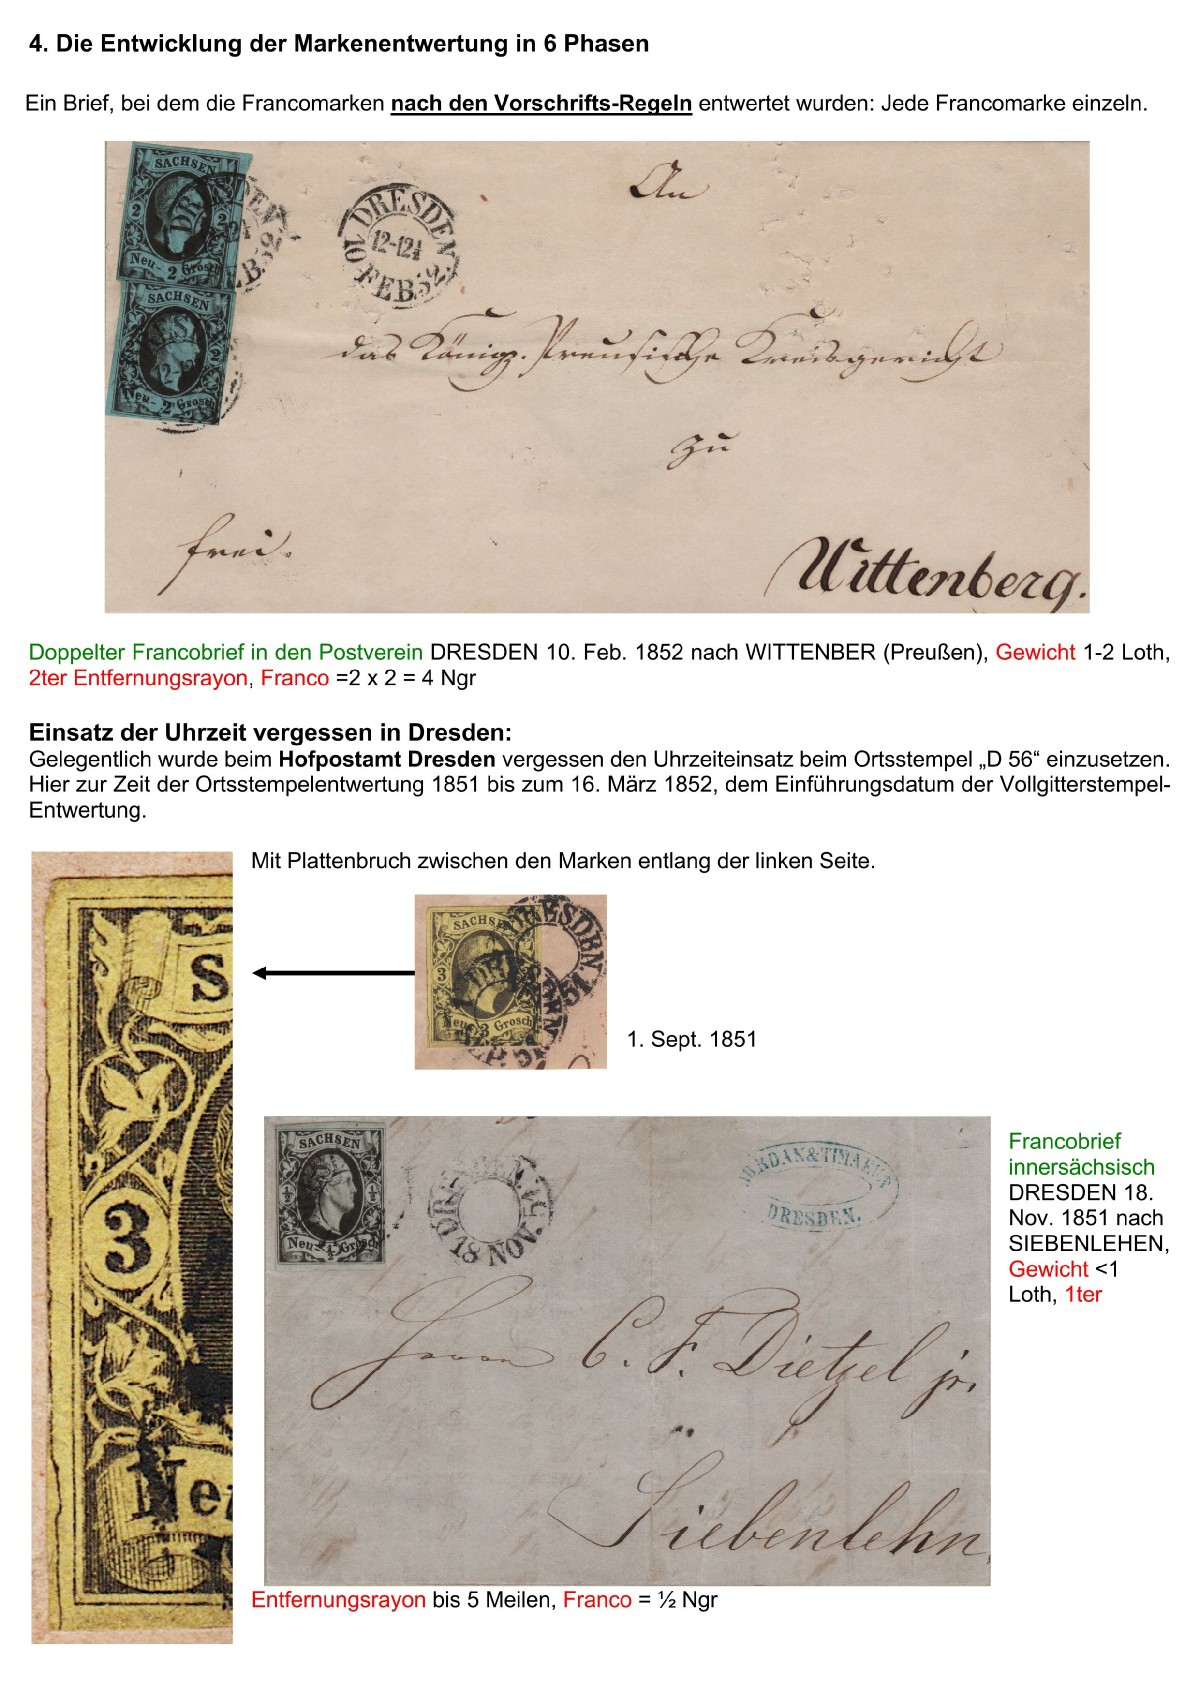 4. Die Entwicklung der Markenentwertung in 6 Phasen
Ein Brief, bei dem die Francomarken nach den Vorschrifts-Regeln entwertet wurden: Jede Francomarke einzeln.
SACHSEN
2 2
Neu- 2 Grosch
SACHSEN
2
Neu- 2 Grosch
DRESDEN
12-12¼
10 FEB. 52
An
das Königr. Preußische Kreisgericht
zu
frei.
Wittenberg.
Doppelter Francobrief in den Postverein DRESDEN 10. Feb. 1852 nach WITTENBER (Preußen), Gewicht 1-2 Loth,
2ter Entfernungsrayon, Franco =2 x 2 = 4 Ngr
Einsatz der Uhrzeit vergessen in Dresden:
Gelegentlich wurde beim Hofpostamt Dresden vergessen den Uhrzeiteinsatz beim Ortsstempel „D 56“ einzusetzen.
Hier zur Zeit der Ortsstempelentwertung 1851 bis zum 16. März 1852, dem Einführungsdatum der Vollgitterstempel-
Entwertung.
Mit Plattenbruch zwischen den Marken entlang der linken Seite.
S
3
Neu
SACHSE
3
Neu- 3 Grosch
DRESDEN
51
1. Sept. 1851
SACHSEN
½ ½
Neu- ½ Grosch
DRESDEN
18 NOV. 51
JORDAN&TIMAEUS
DRESDEN.
Herrn C. F. Dietzel jr.
Siebenlehn
Francobrief
innersächsisch
DRESDEN 18.
Nov. 1851 nach
SIEBENLEHEN,
Gewicht <1
Loth, 1ter
Entfernungsrayon bis 5 Meilen, Franco = ½ Ngr